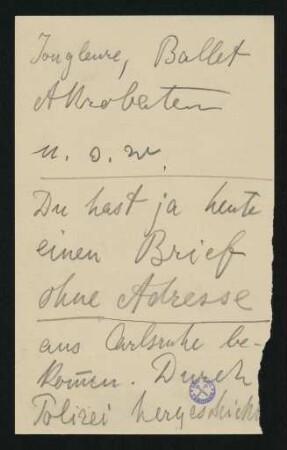 Jongleure, Ballet
Akrobaten
u. s. w.
Du hast ja heute
einen Brief
ohne Adresse
aus Carlsruhe be-
komen. Durch
Polizei hergeschickt